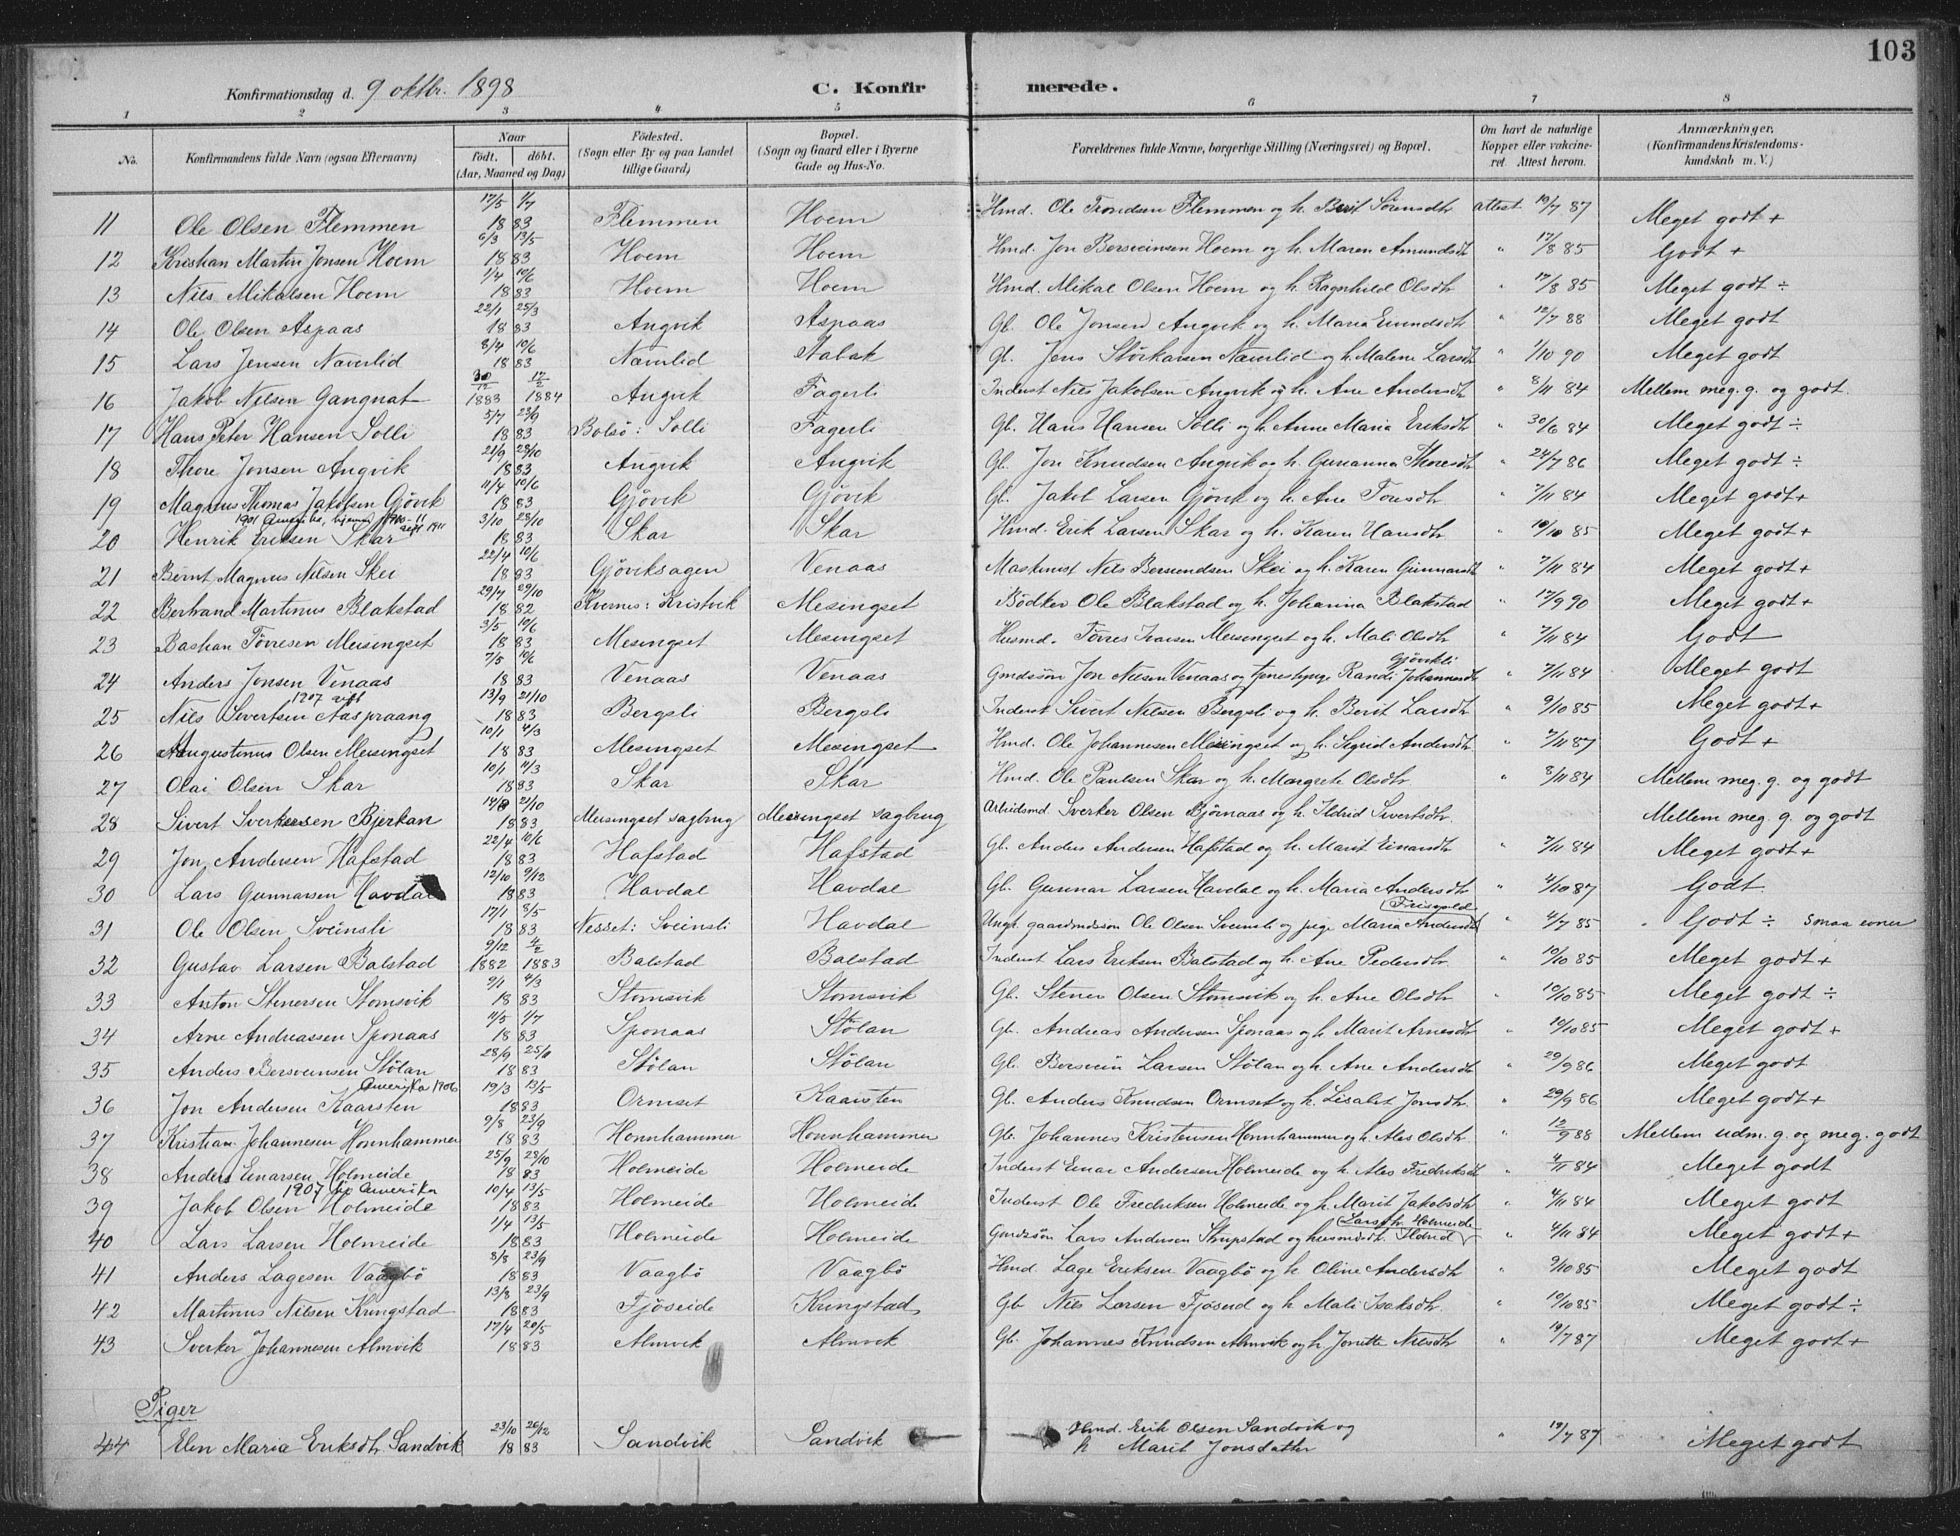 103
Konfirmationsdag d. 9 oktbr. 1898 C. Konfirmerede.
1 2 3 4 5 6 7 8
No. Konfirmandens fulde Navn (ogsaa Efternavn) Naar födt. döbt. (Aar, Maaned og Dag) Födested. (Sogn eller By og paa Landet tillige Gaard) Bopæl. (Sogn og Gaard eller i Byerne Gade og Hus-No. Forældrenes fulde Navne, borgerlige Stilling (Næringsvei) og Bopæl. Om havt de naturlige Kopper eller vakcineret. Attest herom. Anmærkninger. (Konfirmandens Kristendomskundskab m. V.)
11 Ole Olsen Flemmen 17/5 1/7 1883 Flemmen Hoem Hmd. Ole Trondsen Flemmen og h. Berit Sörensdtr attest 19/7 87 Meget godt +
12 Kristian Martin Jonsen Hoem 6/3 13/5 1883 Hoem Hoem Hmd. Jon Bersveinsen Hoem og h. Maren Amundsdtr " 17/8 85 Godt +
13 Nils Mikalsen Hoem 1/4 10/6 1883 Hoem Hoem Hmd. Mikal Olsen Hoem og h. Ragnhild Olsdtr " 17/8 85 Meget godt ÷
14 Ole Olsen Aspaas 22/1 25/3 1883 Angvik Aspaas Gb. Ole Jonsen Angvik og h. Maria Emundsdtr " 12/7 88 Meget godt
15 Lars Jensen Navrlid 8/4 10/6 1883 Navrlid Stabak Gb. Jens Störkarsen Navrlid og h. Malene Larsdtr " 1/10 90 Meget godt
16 Jakob Nilsen Gangnat 30/12 1883 17/2 1884 Angvik Fagerli Inderst Nils Jakobsen Angvik og h. Ane Andersdtr " 8/11 84 Mellem meg. g. og godt.
17 Hans Peter Hansen Solli 5/7 23/9 1883 Bolsö: Solli Fagerli Gb. Hans Hansen Solli og h. Anne Maria Eriksdtr " 30/6 84 Meget godt ÷
18 Thore Jonsen Angvik 21/9 28/10 1883 Angvik Angvik Gb. Jon Knudsen Angvik og h. Gurianna Thoresdtr " 24/7 86 Meget godt ÷
19 Magnus Thomas Jakobsen Gjövik 11/4 10/6 1883 Gjövik Gjövik Gb. Jakob Larsen Gjövik og h. Ane Tonsdtr " 7/11 84 Meget godt +
1901 Amerika, hjemme 1910-11 reist 1911
20 Henrik Eriksen Skar 3/10 28/10 1883 Skar Skar Hmd. Erik Larsen Skar og h. Karen Hansdtr " 10/10 85 Meget godt +
21 Bernt Magnus Nilsen Skei 22/4 10/6 1883 Gjöviksagen Venaas Maskinist Nils Bersvendsen Skei og h. Karen Gunnarsdtr " 7/11 84 Meget godt +
22 Bertrand Martinus Blakstad 29/7 29/10 1882 Kvernes: Kristvik Mesingset Bödker Ole Blakstad og h. Johanna Blakstad " 17/9 90 Meget godt +
23 Bastian Törresen Meisingset 3/5 10/6 1883 Mesingset Mesingset Husmd. Törres Ivarsen Meisingset og h. Mali Olsdtr " 7/11 84 Godt
24 Anders Jonsen Venaas 7/5 10/6 1883 Venaas Venaas Gmdssön Jon Nilsen Venaas og tjenestepige Randi Johannesdtr Gjövikli " 7/11 84 Meget godt
1907 gift
25 Nils Sivertsen Aaspraang 13/9 21/10 1883 Bergsli Bergsli Inderst Sivert Nilsen Bergsli og h. Berit Larsdtr " 9/10 85 Meget godt +
26 Augustinus Olsen Meisingset 10/1 4/3 1883 Mesingset Mesingset Hmd. Ole Johannesen Mesingset og h. Sigrid Andersdtr " 7/11 87 Godt +
27 Olai Olsen Skar 10/1 11/3 1883 Skar Skar Hmd. Ole Paulsen Skar og h. Margrete Olsdtr " 8/11 84 Mellem meg. g. og godt
28 Sivert Sverkersen Bjerkan 14/8 21/10 1883 Meisingset sagbrug Mesingset sagbrug Arbeidsmd. Sverker Olsen Björnaas og h. Ildrid Sivertsdtr. Mellem meg. g. og godt
29 Jon Andersen Hafstad 22/4 10/6 1883 Hafstad Hafstad Gb. Anders Andersen Hafstad og h. Marit Einarsdtr " 7/11 84 Meget godt +
30 Lars Gunnarsen Havdal 12/10 9/12 1883 Havdal Havdal Gb. Gunnar Larsen Havdal og h. Maria Andersdtr " 4/10 87 Godt.
31 Ole Olsen Sveinsli 17/1 8/5 1883 Nesset: Sveinsli Havdal Ungk. gaardmdssön Ole Olsen Sveinsli og pige Maria Andersdtr Frisvold " 4/7 85 Godt ÷ smaa evner
32 Gustav Larsen Balstad 9/12 1882 4/2 1883 Balstad Balstad Inderst Lars Eriksen Balstad og h. Ane Pedersdtr " 10/10 85 Meget godt +
33 Anton Stenersen Stomsvik 9/1 4/3 1883 Stomsvik Stomsvik Gb. Stener Olsen Stomsvik og h. Ane Olsdtr " 10/10 85 Meget godt ÷
34 Arne Andreassen Sponaas 11/5 1/7 1883 Sponaas Stölan Gb. Andreas Andersen Sponaas og h. Marit Arnesdtr " 10/10 85 Meget godt +
35 Anders Bersveinsen Stölan 28/9 25/11 1883 Stölan Stölan Gb. Bersvein Larsen Stölan og h. Ane Andersdtr " 29/9 86 Meget godt
Amerika 1906
36 Jon Andersen Kaarsten 19/3 13/5 1883 Ormset Kaarsten Gb. Anders Knudsen Ormset og h. Lisabet Jonsdtr. " 29/9 86 Meget godt +
37 Kristian Johannesen Honnhammer 9/8 23/9 1883 Honnhammer Honnhammer Gb. Johannes Kristensen Honnhammer og h. Ales Olsdtr. " 12/9 88 Mellem udm. g. og meg. godt
38 Anders Einarsen Holmeide 25/9 28/10 1883 Holmeide Holmeide Inderst Einar Andersen Holmeide og h. Ales Fredriksdtr " 4/11 84 Meget godt
1907 til Amerika
39 Jakob Olsen Holmeide 10/4 13/5 1883 Holmeide Holmeide Inderst Ole Fredriksen Holmeide og h. Marit Jakobsdtr " 4/11 84 Meget godt
40 Lars Larsen Holmeide 1/4 13/5 1883 Holmeide Holmeide Gmdssön Lars Andersen Strupstad og husmdsdtr. Ildrid Larsdtr Holmeide " 4/11 84 Meget godt +
41 Anders Lagesen Vaagbö 8/8 23/9 1883 Vaagbö Vaagbö Hmd. Lage Eriksen Vaagbö og h. Oline Andersdtr " 9/10 85 Meget godt
42 Martinus Nilsen Kringstad 13/8 23/9 1883 Fjöseide Kringstad Gb Nils Larsen Fjöseid og h. Mali Isaksdtr. " 10/10 85 Meget godt ÷
43 Sverker Johannesen Almvik 17/4 20/5 1883 Almvik Almvik Gb. Johannes Knudsen Almvik og h Jonette Nilsdtr " 19/7 87 Meget godt +
Piger
44 Elen Maria Eriksdtr Sandvik 23/10 26/12 1883 Sandvik Sandvik Hmd. Erik Olsen Sandvik og h Marit Jonsdatter " 19/7 87 Meget godt